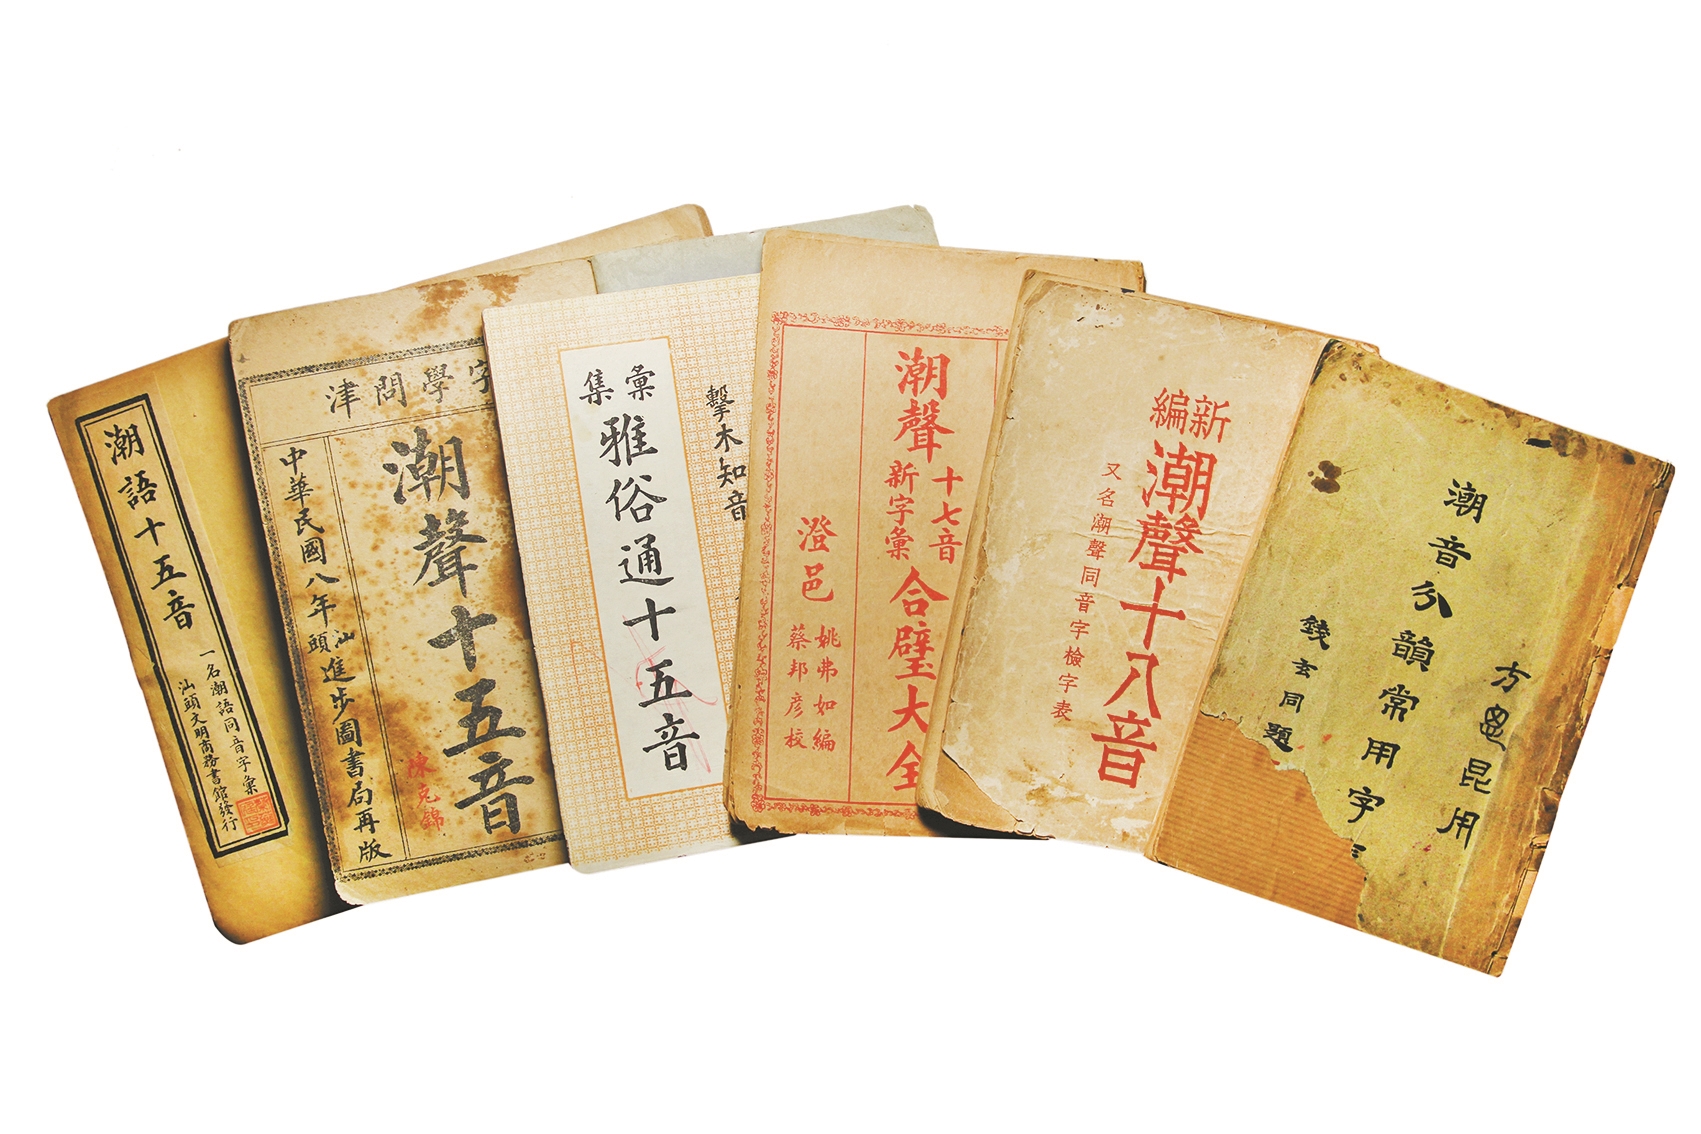 潮語十五音
一名潮語同音字彙
汕頭文明商務書館發行
津問學字
潮聲十五音
中華民國八年汕頭進步圖書局再版
陳克錦
彙集
雅俗通十五音
擊木知音
潮聲十七音新字彙合璧大全
澄邑
姚弗如編
蔡邦彦校
新編
潮聲十八音
又名潮聲同音字檢字表
潮音分韻常用字
錢玄同題
方
昆用